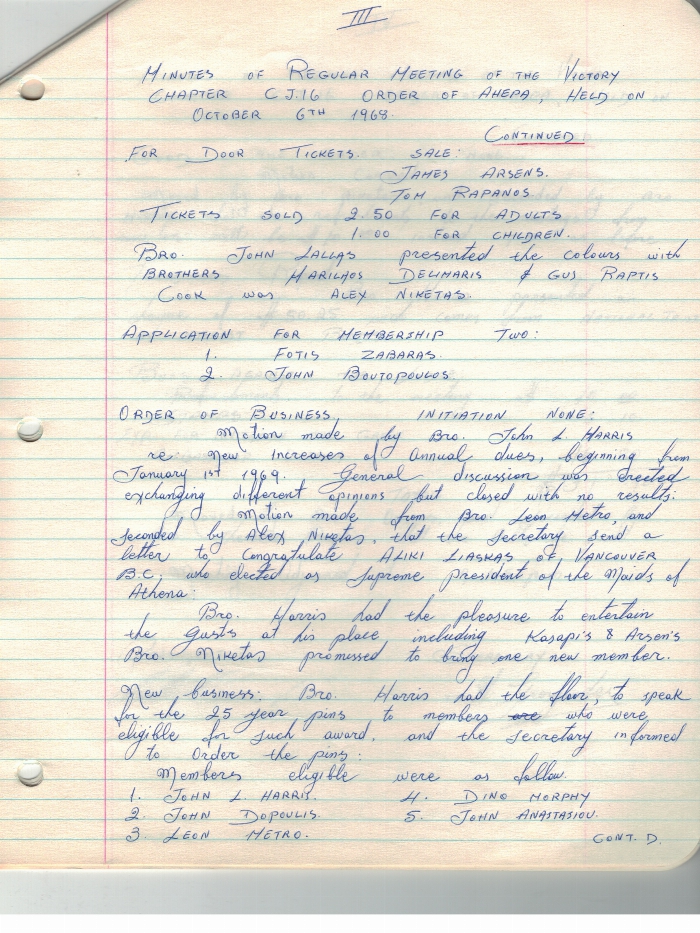 III
MINUTES OF REGULAR MEETING OF THE VICTORY
CHAPTER C J.16 ORDER OF AHEPA, HELD ON
OCTOBER 6TH 1968.
CONTINUED
FOR DOOR TICKETS. SALE:
JAMES ARSENS.
TOM RAPANOS.
TICKETS SOLD 2.50 FOR ADULTS
1.00 FOR CHILDREN.
BRO. JOHN LALLAS presented the colours with
BROTHERS HARILAOS DELIMARIS & GUS RAPTIS
COOK was ALEX NIKETAS.
APPLICATION FOR MEMBERSHIP TWO:
1. FOTIS ZABARAS.
2. JOHN BOUTOPOULOS.
ORDER OF BUSINESS, INITIATION NONE:
Motion made by Bro. John L. HARRIS
re New Increases of Annual dues, beginning from
January 1st 1969. General discussion was erected
exchanging different opinions but closed with no results:
Motion made from Bro. Leon Metro, and
seconded by Alex Niketas, that the secretary send a
letter to Congratulate ALIKI LIASKAS OF, VANCOUVER
B.C. who elected as Supreme president of the Maids of
Athena:
Bro. Harris had the pleasure to entertain
the Gusts at his place including Kasapi's & Arsen's
Bro. Niketas promissed to bring one new member.
New business: Bro. Harris had the floor, to speak
for the 25 year pins to members are who were
eligible for such award, and the secretary informed
to Order the pins:
Members eligible were as follow.
1. JOHN L. HARRIS. 4. DINO MORPHY
2. JOHN DOPOULIS. 5. JOHN ANASTASIOU.
3 LEON METRO.
CONT. D.